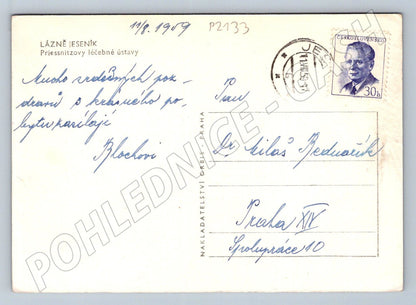 11/8. 1959
P2133
LÁZNĚ JESENÍK
Priessnitzovy léčebné ústavy
Mnoho srdečných poz-
dravů z krásného po-
bytu zasílají
Blochovi
NAKLADATELSTVÍ ORBIS PRAHA
ČESKOSLOVENSKO
30h
Pan
Dr. Miloš Bednařík
Praha XIV
Spolupráce 10
POHLEDNICE - CZ